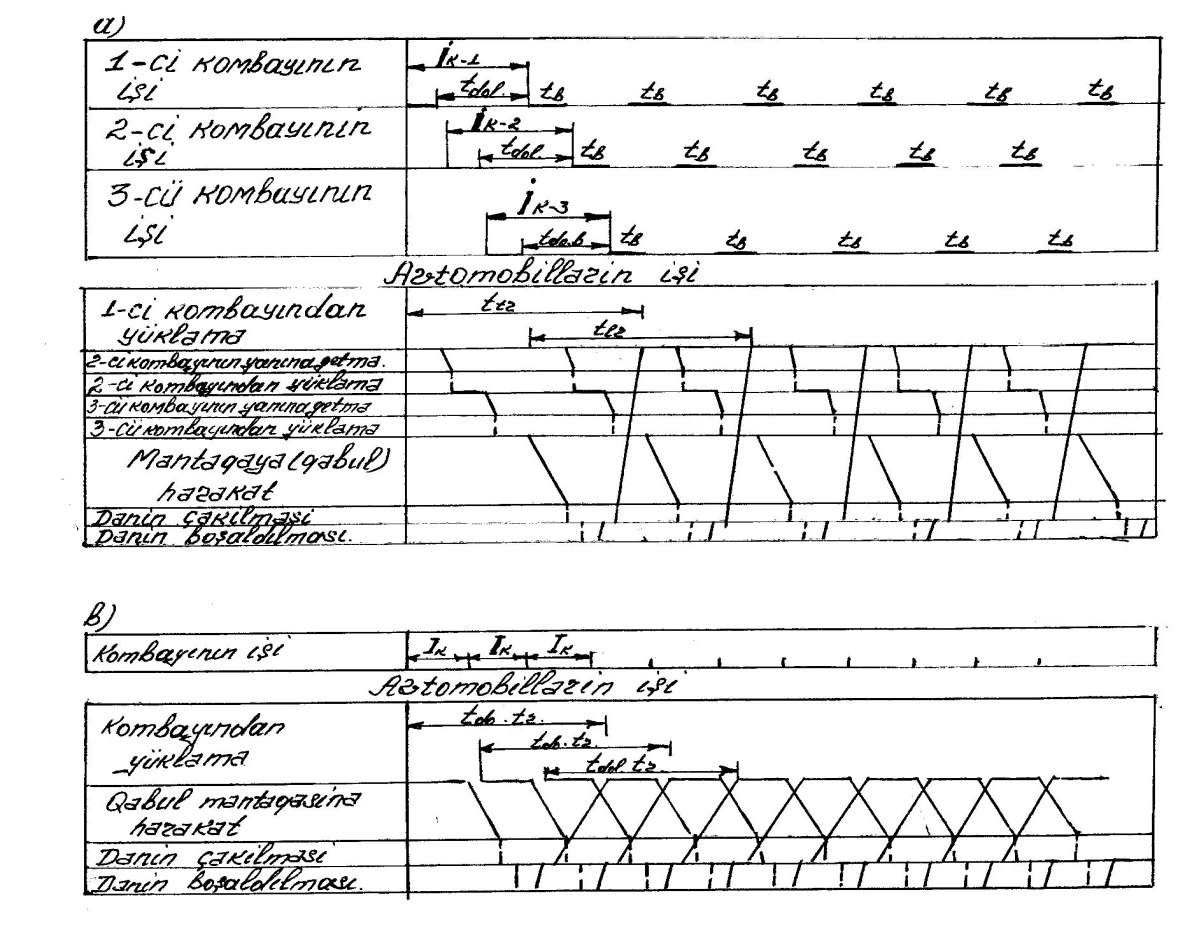 a)
1-ci kombayının
işi
İк-1
tdol.
tв tв tв tв tв tв
2-ci kombayının
işi
İк-2
tdol.
tв tв tв tв tв
3-cü kombayının
işi
İк-3
tdo.в
tв tв tв tв tв
Avtomobillarin işi
1-ci kombayından
yüklama
ttz
tez
2-ci kombayının yanına getma.
2-ci kombayından yüklama
3-cü kombayının yanına getma
3-cü kombayından yüklama
Mantaqaya (qabul)
harakat
Danin çakilmasi
Danin boşaldılması.
в)
Kombayının işi
Iк Iк Iк
Avtomobillarin işi
Kombayından
yüklama
tdo. tz.
tdo. tz.
tdol. tz.
Qabul mantaqasina
harakat
Danin çakilmasi
Danin boşaldılması.